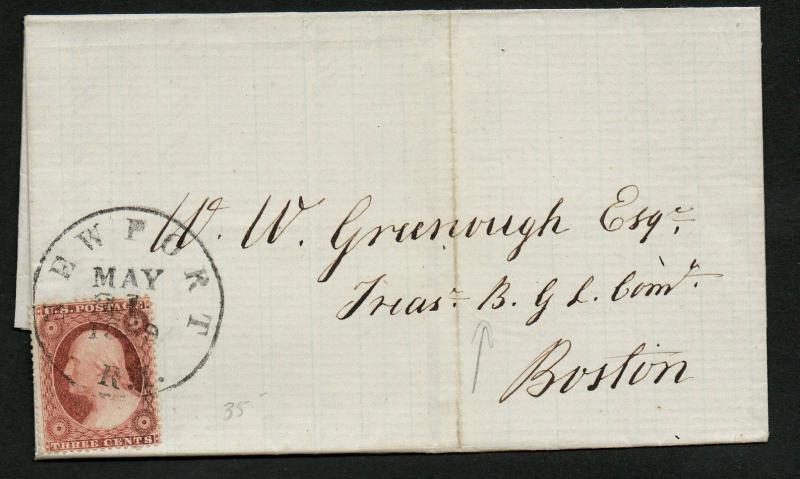 W. W. Greenough Esqr.
Treasr B. G L. Comy.
Boston
EWPORT
MAY
R.I.
U.S. POSTAGE
THREE CENTS
35-